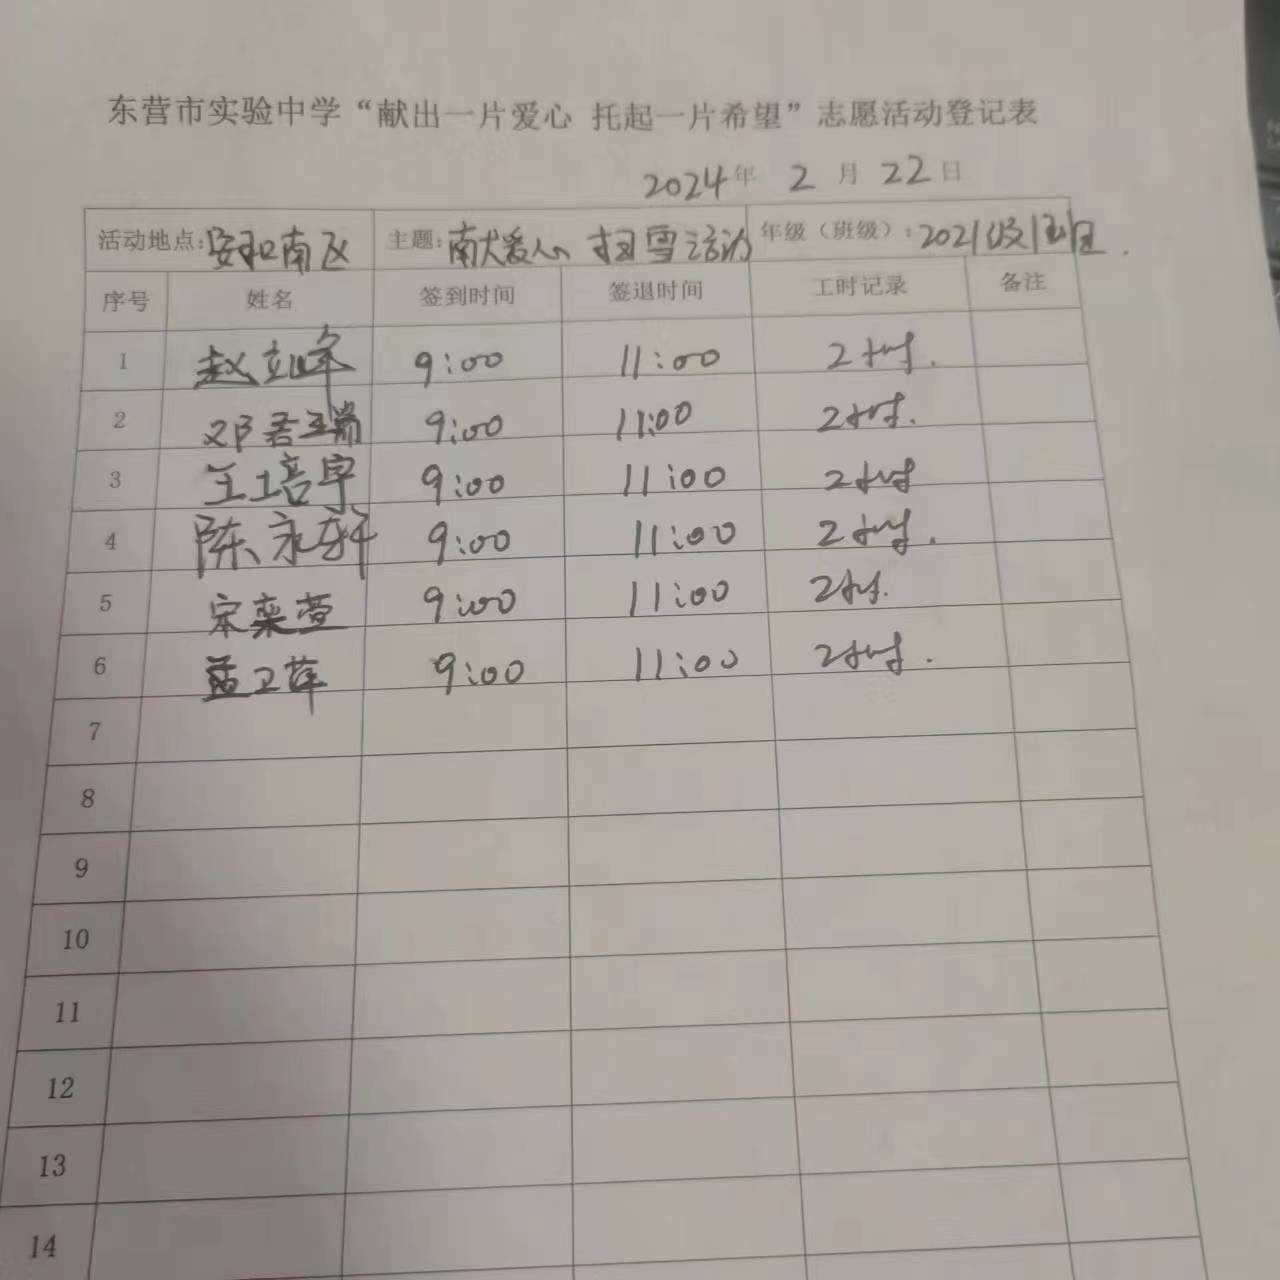 东营市实验中学“献出一片爱心 托起一片希望”志愿活动登记表
2024年 2 月 22 日
活动地点:安和南区 主题:献爱心 扫雪活动 年级（班级）:2021级1班.
序号 姓名 签到时间 签退时间 工时记录 备注
1 赵立峰 9:00 11:00 2小时.
2 邓君瑞 9:00 11:00 2小时.
3 王培宇 9:00 11:00 2小时
4 陈永轩 9:00 11:00 2小时.
5 宋奕萱 9:00 11:00 2小时.
6 孟卫萍 9:00 11:00 2小时.
7
8
9
10
11
12
13
14